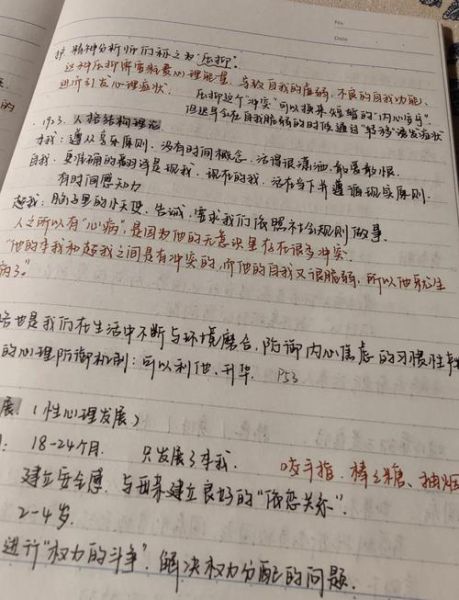 No
Date
精神分析师们称之为"压抑"。
这种压抑非常耗费心理能量,导致自我的虚弱,不良的自我功能,
进而引发心理症状. 压抑这个"冲突"可以换来短暂的"内心安宁".
的
但迟早会在自我脆弱的时候通过"转移"诱发症状
1923. 人格结构理论
本我:遵从享乐原则. 没有时间概念. 活得很潇洒. 敢爱敢恨.
自我:更准确的翻译是现我. 现在的我. 活在当下并遵循现实原则.
有时间感知力
超我:脑子里的小天使. 告诫,需求我们依照社会规则做事.
人之所以有"心病",是因为他的无意识里存在很多冲突.
"他的本我和超我之间是有冲突的,而他的自我又很脆弱,所以他就生
病了."
也是我们在生活中不断与环境磨合,防御内心焦虑的习惯性
的心理防御机制:可以利他、升华. P53
展(性心理发展)
: 18-24个月. 只发展了本我. 咬手指、棒棒糖、抽烟
建立安全感. 与母亲建立良好的"依恋关系".
2-4岁
进行"权力的斗争". 解决权力分配的问题.